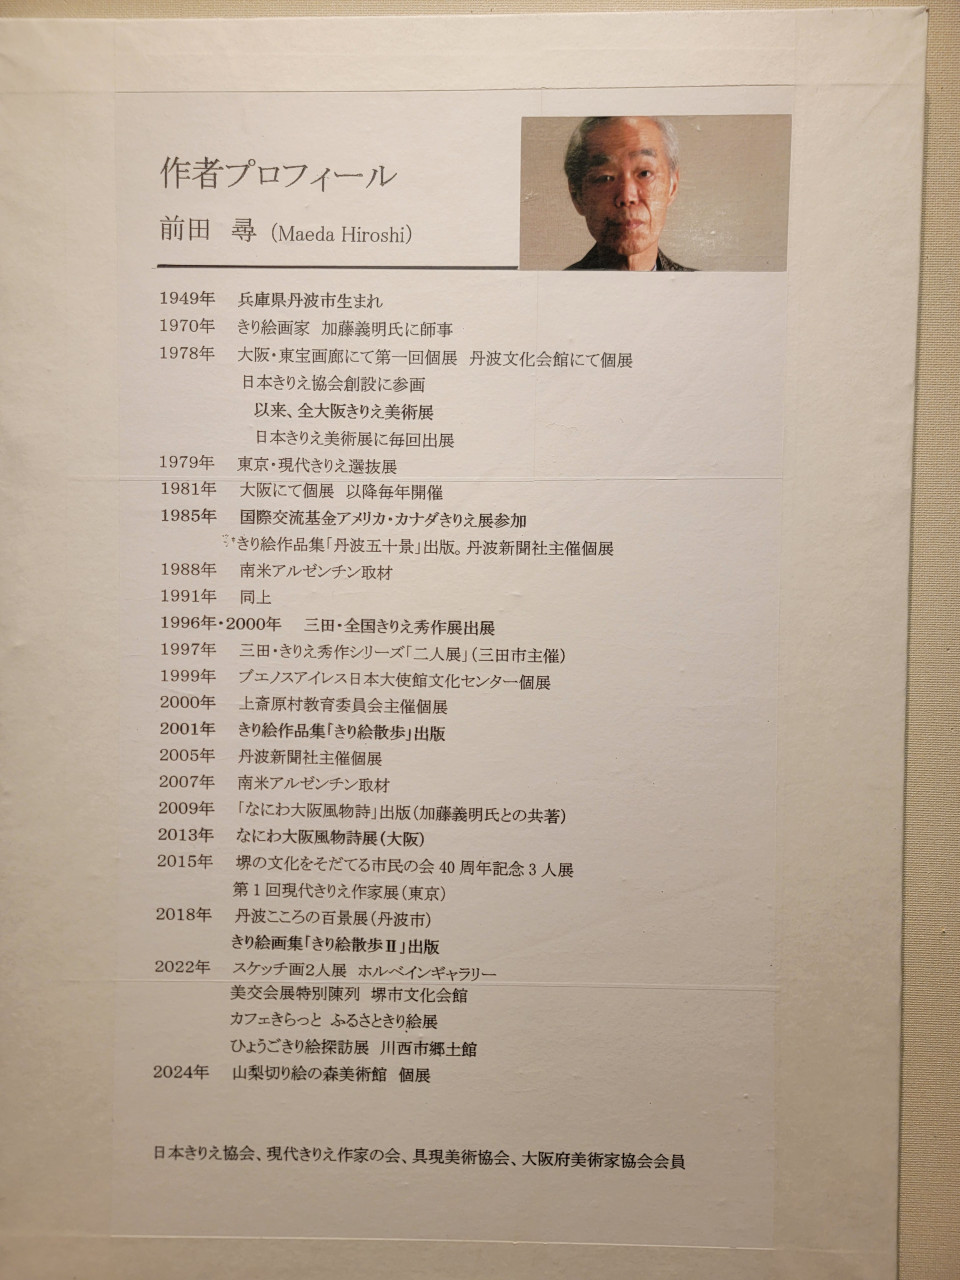 作者プロフィール
前田 尋 (Maeda Hiroshi)
1949年 兵庫県丹波市生まれ
1970年 きり絵画家 加藤義明氏に師事
1978年 大阪・東宝画廊にて第一回個展 丹波文化会館にて個展
日本きりえ協会創設に参画
以来、全大阪きりえ美術展
日本きりえ美術展に毎回出展
1979年 東京・現代きりえ選抜展
1981年 大阪にて個展 以降毎年開催
1985年 国際交流基金アメリカ・カナダきりえ展参加
きり絵作品集「丹波五十景」出版。丹波新聞社主催個展
1988年 南米アルゼンチン取材
1991年 同上
1996年・2000年 三田・全国きりえ秀作展出展
1997年 三田・きりえ秀作シリーズ「二人展」(三田市主催)
1999年 ブエノスアイレス日本大使館文化センター個展
2000年 上斎原村教育委員会主催個展
2001年 きり絵作品集「きり絵散歩」出版
2005年 丹波新聞社主催個展
2007年 南米アルゼンチン取材
2009年 「なにわ大阪風物詩」出版(加藤義明氏との共著)
2013年 なにわ大阪風物詩展(大阪)
2015年 堺の文化をそだてる市民の会 40 周年記念 3 人展
第 1 回現代きりえ作家展(東京)
2018年 丹波こころの百景展(丹波市)
きり絵画集「きり絵散歩Ⅱ」出版
2022年 スケッチ画2人展 ホルベインギャラリー
美交会展特別陳列 堺市文化会館
カフェきらっと ふるさときり絵展
ひょうごきり絵探訪展 川西市郷土館
2024年 山梨切り絵の森美術館 個展
日本きりえ協会、現代きりえ作家の会、具現美術協会、大阪府美術家協会会員